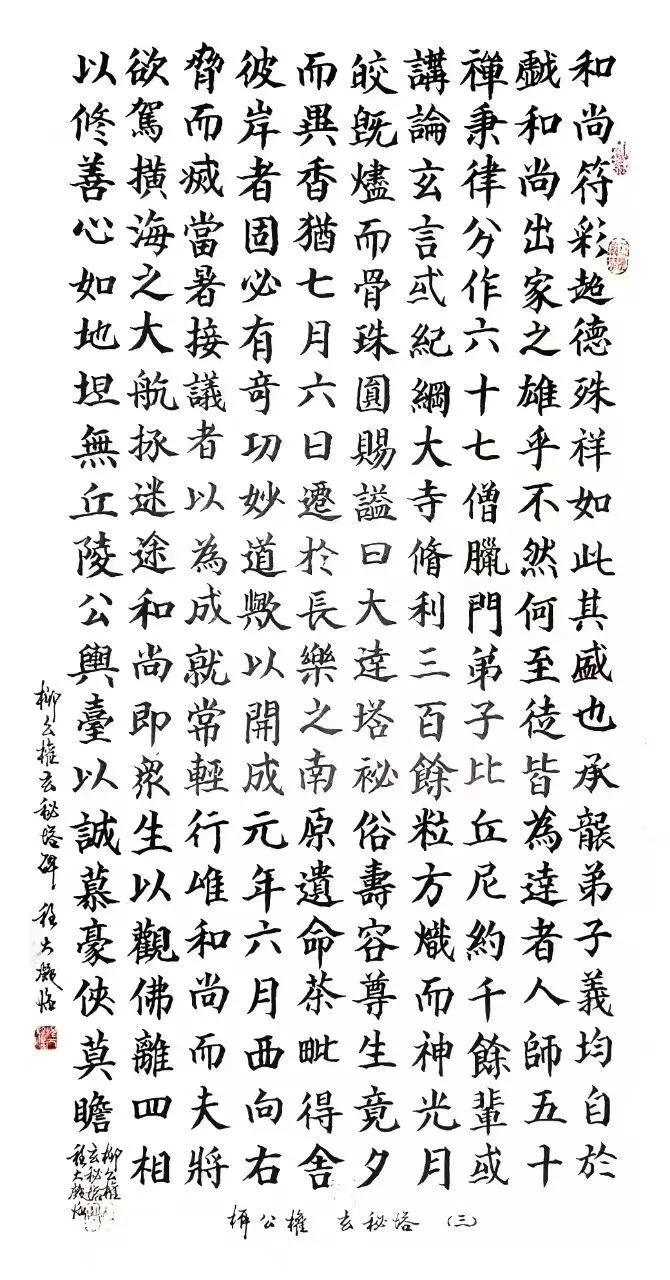 和尚符彩超德殊祥如此其盛也承襲弟子義均自於
戲和尚出家之雄乎不然何至徒皆為達者人師五十
禪秉律分作六十七僧臘門弟子比丘尼約千餘輩或
講論玄言或紀綱大寺脩利三百餘粒方熾而神光月
皎既燼而骨珠圓賜謚曰大達塔祕俗壽容尊生竟夕
而異香猶七月六日遷於長樂之南原遺命荼毗得舍
彼岸者固必有奇功妙道歟以開成元年六月西向右
脅而滅當暑接議者以為成就常輕行唯和尚而夫將
欲駕橫海之大航拯迷途和尚即眾生以觀佛離四相
以修善心如地坦無丘陵公輿臺以誠慕豪俠莫瞻
柳公權玄秘塔
程大龍臨
柳公權玄秘塔碑 程大龍臨
柳公權 玄秘塔 (三)